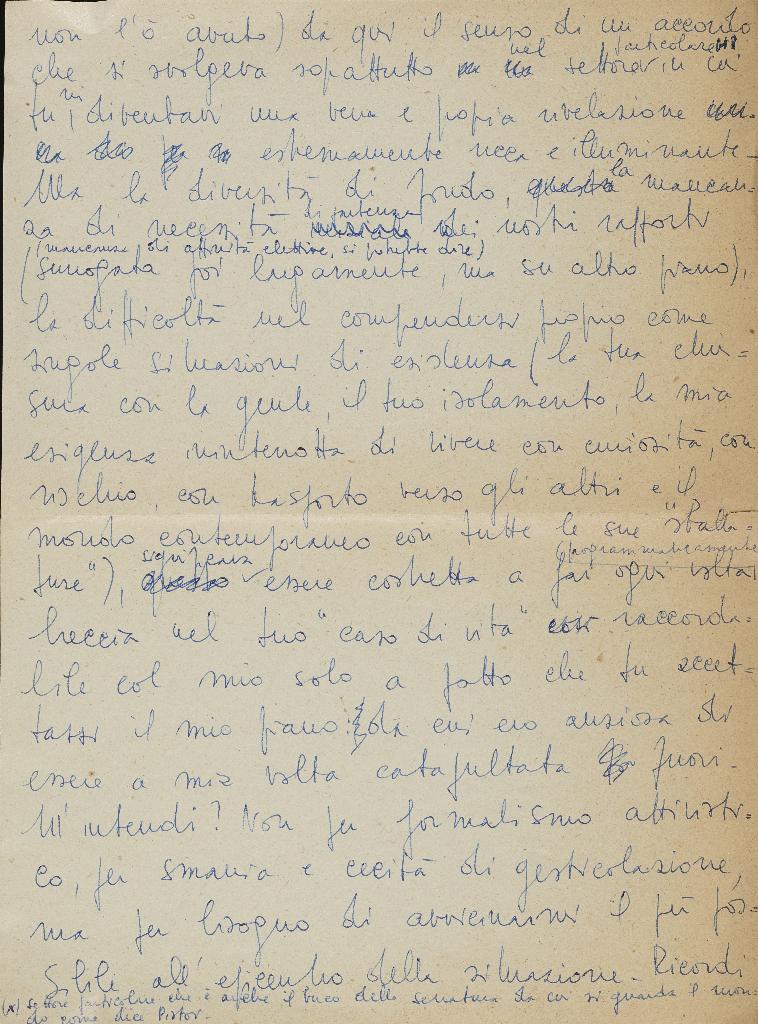 non l'ò avuto) da qui il senso di un accordo
che si svolgeva sopattutto nel settore particolare (x) in cui
tu mi diventavi una vera e propia rivelazione
estremamente ricca e illuminante -
Ma la diversità di fondo, la mancan-
za di necessità di partenza dei nostri rapporti
(mancanza di affinità elettive, si potrebbe dire)
(surrogata poi largamente, ma su altro piano),
la difficoltà nel comprendersi propio come
singole situazioni di esistenza (la tua chiu=
sura con la gente, il tuo isolamento, la mia
esigenza ininterrotta di vivere con curiosità, con
rischio, con trasporto verso gli altri e il
mondo contemporaneo con tutte le sue "sbatta=
ture"), significava essere costretta a far ogni volta (programmaticamente
breccia nel tuo "caso di vita" raccorda=
bile col mio solo a patto che tu accet-
tassi il mio piano: da cui ero ansiosa di
essere a mia volta catapultata fuori -
M'intendi? Non per formalismo attivisti-
co, per smania e cecità di gesticolazione,
ma per bisogno di avvicinarmi il più pos=
sibile all'epicentro della situazione - Ricordi
(x) settore particolare che è anche il buco della serratura da cui si guarda il mon-
do come dice Pistoi -